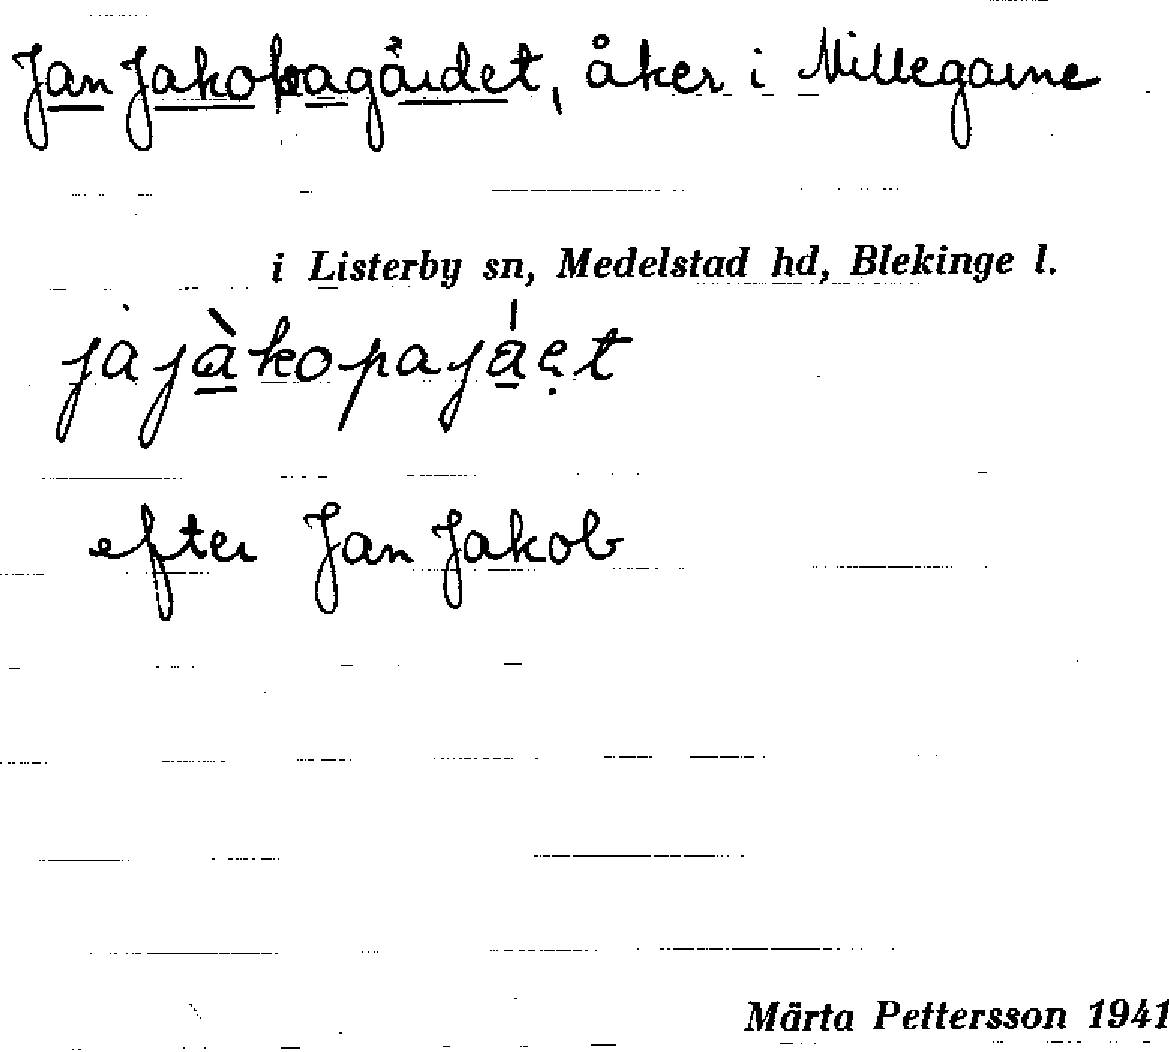 Jan Jakobagärdet, åker i Millegarne
i Listerby sn, Medelstad hd, Blekinge l.
jajàkopajáẹt
efter Jan Jakob
Märta Pettersson 1941